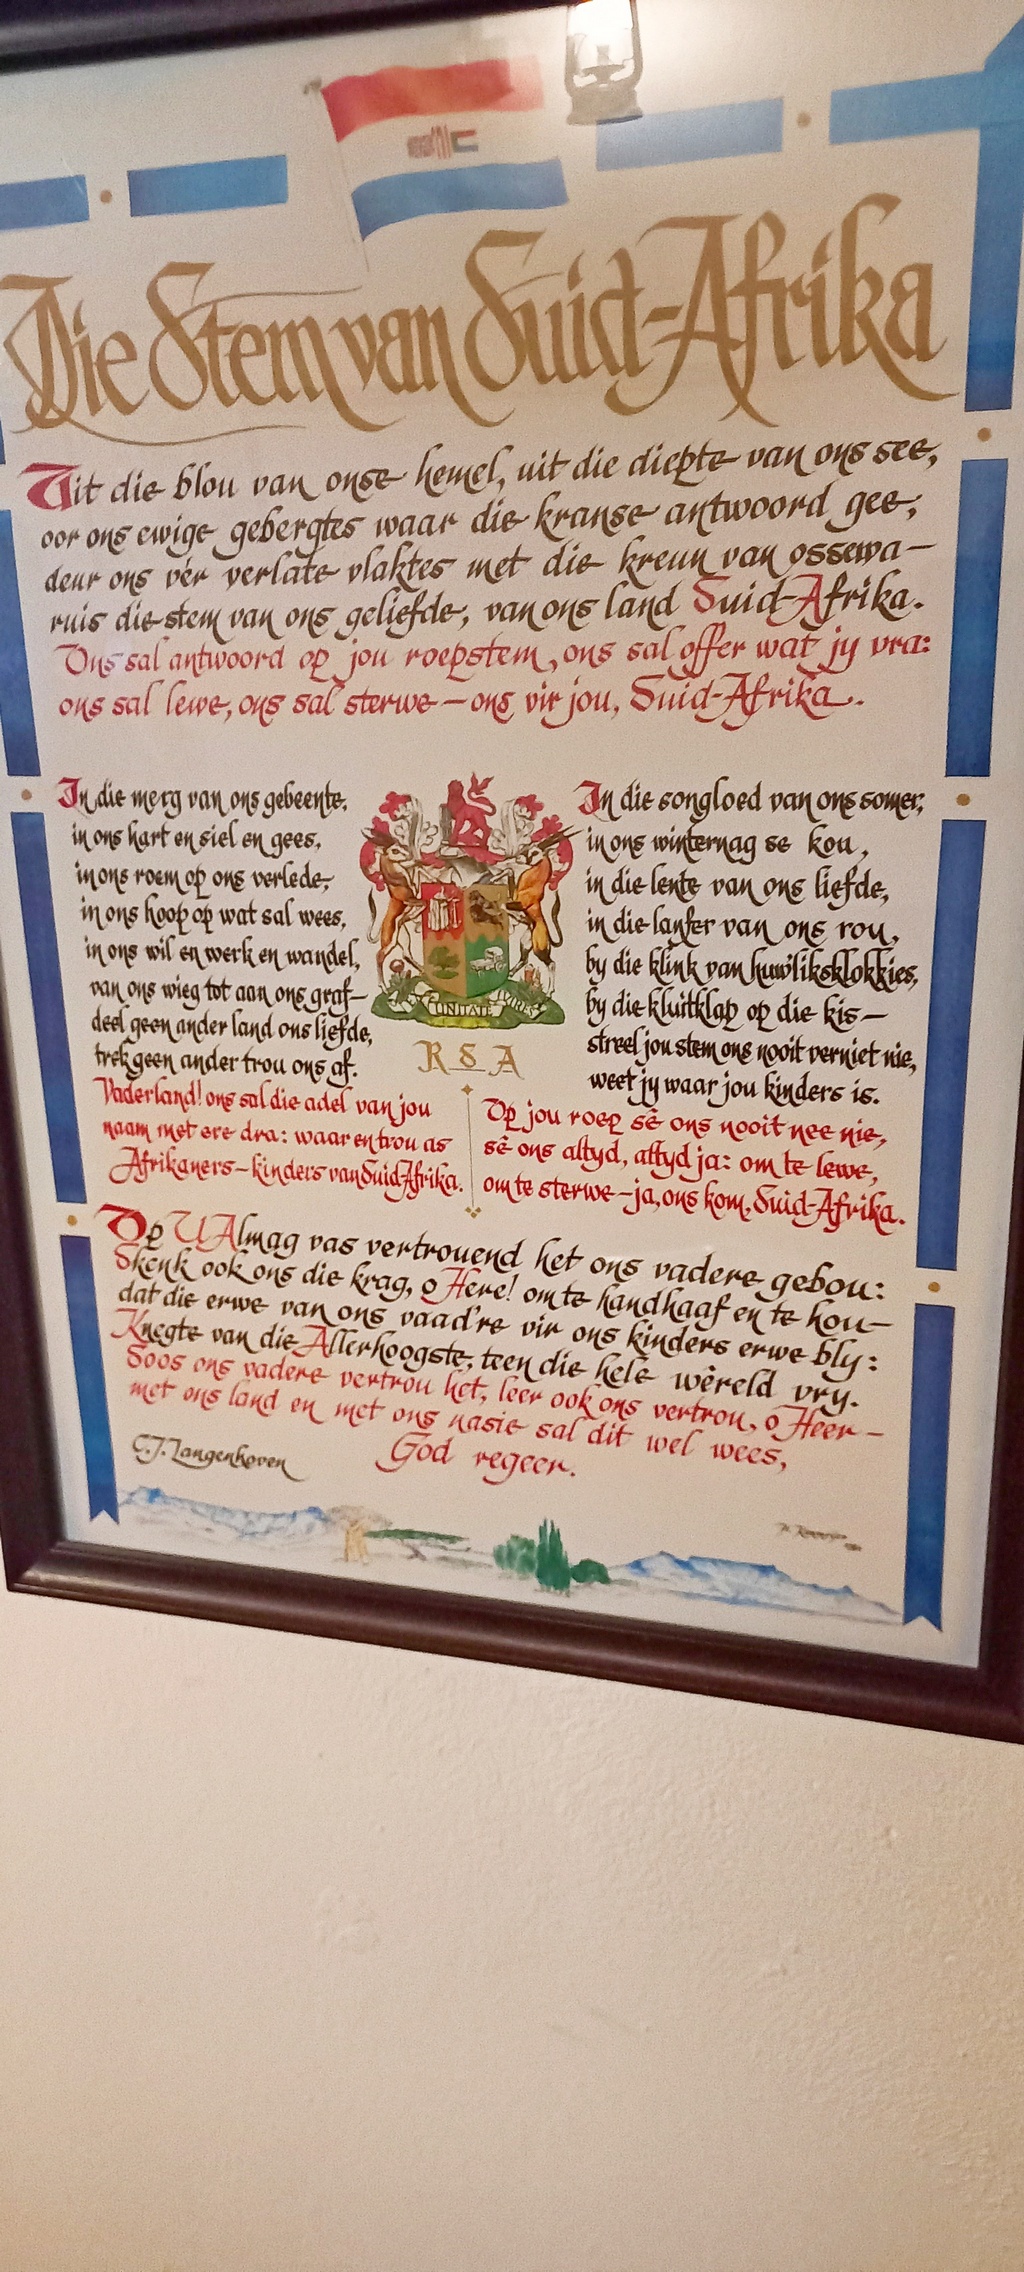 Die Stem van Suid-Afrika
Uit die blou van onse hemel, uit die diepte van ons see,
oor ons ewige gebergtes waar die kranse antwoord gee;
deur ons vér verlate vlaktes met die kreun van ossewa –
ruis die stem van ons geliefde, van ons land Suid-Afrika.
Ons sal antwoord op jou roepstem, ons sal offer wat jy vra:
ons sal lewe, ons sal sterwe – ons vir jou, Suid-Afrika.
In die merg van ons gebeente,
in ons hart en siel en gees,
in ons roem op ons verlede,
in ons hoop op wat sal wees,
in ons wil en werk en wandel,
van ons wieg tot aan ons graf –
deel geen ander land ons liefde,
trek geen ander trou ons af.
Vaderland! ons sal die adel van jou
naam met ere dra: waar en trou as
Afrikaners – kinders van Suid-Afrika.
UNITATE VIRES
R S A
In die songloed van ons somer,
in ons winternag se kou,
in die lente van ons liefde,
in die lanfer van ons rou,
by die klink van huw'liksklokkies,
by die kluitklap op die kis –
streel jou stem ons nooit verniet nie,
weet jy waar jou kinders is.
Op jou roep sê ons nooit nee nie,
sê ons altyd, altyd ja: om te lewe,
om te sterwe – ja, ons kom, Suid-Afrika.
Op U Almag vas vertrouend het ons vadere gebou:
Skenk ook ons die krag, o Here! om te handhaaf en te hou –
dat die erwe van ons vaad're vir ons kinders erwe bly:
Knegte van die Allerhoogste, teen die hele wêreld vry.
Soos ons vadere vertrou het, leer ook ons vertrou, o Heer –
met ons land en met ons nasie sal dit wel wees,
God regeer.
C.J. Langenhoven